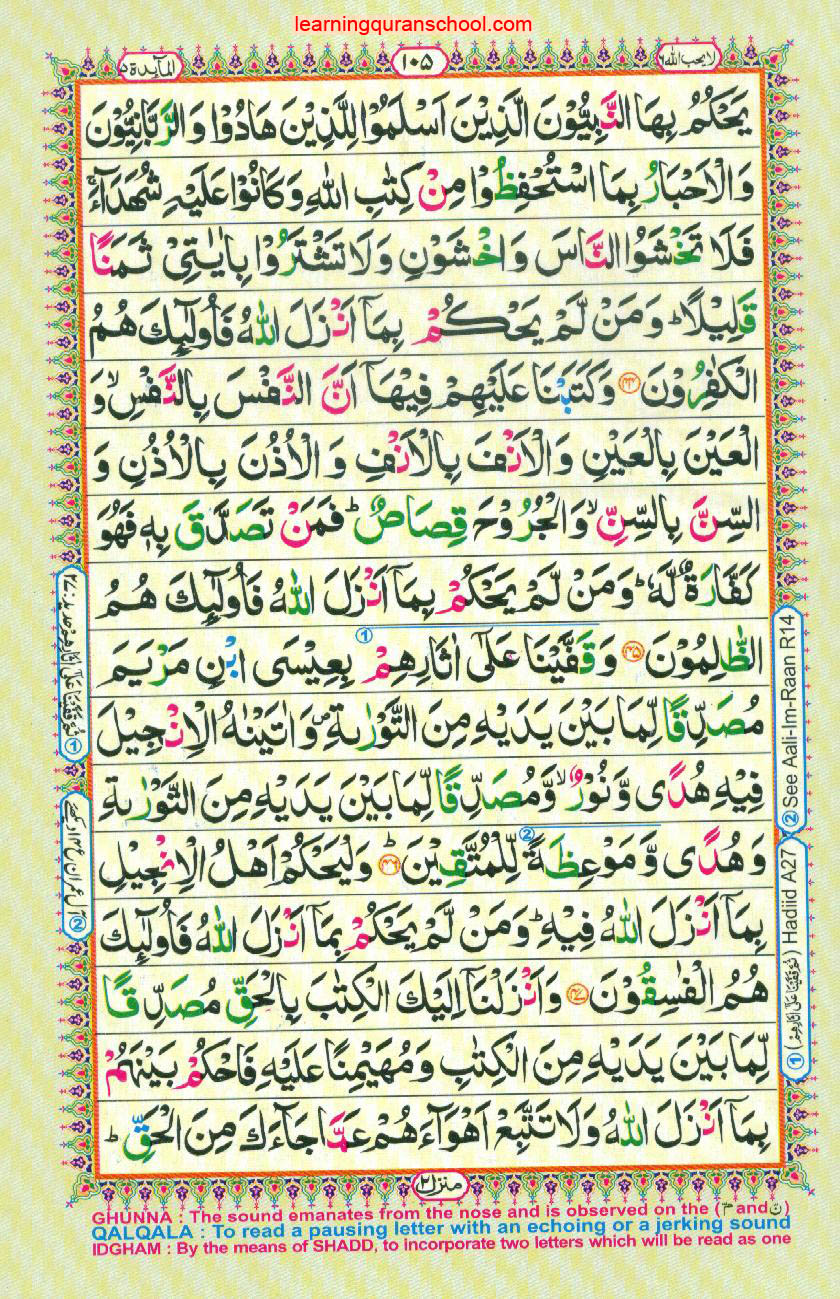 learningquranschool.com
لايحب الله ٦
١٠٥
المآىِٕدة ٥
يَحْكُمُ بِهَا النَّبِيُّوْنَ الَّذِيْنَ اَسْلَمُوْا لِلَّذِيْنَ هَادُوْا وَالرَّبّٰنِيُّوْنَ
وَالْاَحْبَارُ بِمَا اسْتُحْفِظُوْا مِنْ كِتٰبِ اللّٰهِ وَكَانُوْا عَلَيْهِ شُهَدَآءَ ۚ
فَلَا تَخْشَوُا النَّاسَ وَاخْشَوْنِ وَلَا تَشْتَرُوْا بِاٰيٰتِىْ ثَمَنًا
قَلِيْلًا ؕ وَمَنْ لَّمْ يَحْكُمْ بِمَآ اَنْزَلَ اللّٰهُ فَاُولٰٓىِٕكَ هُمُ
الْكٰفِرُوْنَ ۝۴۴ وَكَتَبْنَا عَلَيْهِمْ فِيْهَآ اَنَّ النَّفْسَ بِالنَّفْسِ ۙ وَ
الْعَيْنَ بِالْعَيْنِ وَالْاَنْفَ بِالْاَنْفِ وَالْاُذُنَ بِالْاُذُنِ وَ
السِّنَّ بِالسِّنِّ ۙ وَالْجُرُوْحَ قِصَاصٌ ؕ فَمَنْ تَصَدَّقَ بِهٖ فَهُوَ
كَفَّارَةٌ لَّهٗ ؕ وَمَنْ لَّمْ يَحْكُمْ بِمَآ اَنْزَلَ اللّٰهُ فَاُولٰٓىِٕكَ هُمُ
الظّٰلِمُوْنَ ۝۴۵ وَقَفَّيْنَا عَلٰٓى اٰثَارِهِمْ بِعِيْسَى ابْنِ مَرْيَمَ
مُصَدِّقًا لِّمَا بَيْنَ يَدَيْهِ مِنَ التَّوْرٰىةِ ۪ وَاٰتَيْنٰهُ الْاِنْجِيْلَ
فِيْهِ هُدًى وَّنُوْرٌ ۙ وَّمُصَدِّقًا لِّمَا بَيْنَ يَدَيْهِ مِنَ التَّوْرٰىةِ
وَهُدًى وَّمَوْعِظَةً لِّلْمُتَّقِيْنَ ؕ ۝۴۶ وَلْيَحْكُمْ اَهْلُ الْاِنْجِيْلِ
بِمَآ اَنْزَلَ اللّٰهُ فِيْهِ ؕ وَمَنْ لَّمْ يَحْكُمْ بِمَآ اَنْزَلَ اللّٰهُ فَاُولٰٓىِٕكَ
هُمُ الْفٰسِقُوْنَ ۝۴۷ وَاَنْزَلْنَآ اِلَيْكَ الْكِتٰبَ بِالْحَقِّ مُصَدِّقًا
لِّمَا بَيْنَ يَدَيْهِ مِنَ الْكِتٰبِ وَمُهَيْمِنًا عَلَيْهِ فَاحْكُمْ بَيْنَهُمْ
بِمَآ اَنْزَلَ اللّٰهُ وَلَا تَتَّبِعْ اَهْوَآءَهُمْ عَمَّا جَآءَكَ مِنَ الْحَقِّ ؕ
② See Aali-Im-Raan R14
① (ثُمَّ قَفَّيْنَا عَلٰٓى اٰثَارِهِمْ) Hadiid A27
منزل ٢
GHUNNA : The sound emanates from the nose and is observed on the (م and ن)
QALQALA : To read a pausing letter with an echoing or a jerking sound
IDGHAM : By the means of SHADD, to incorporate two letters which will be read as one